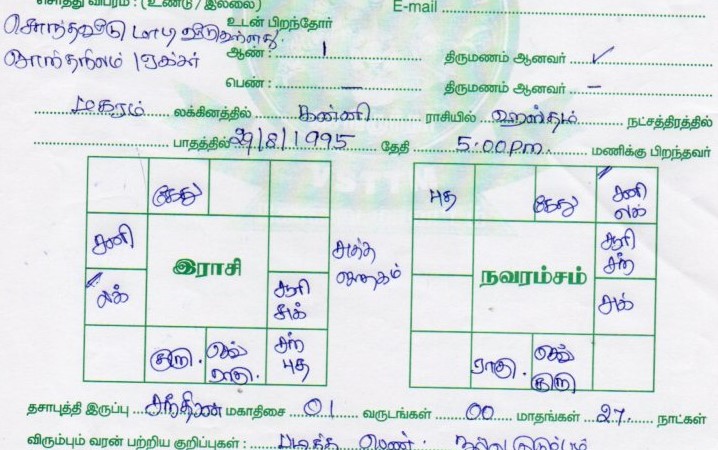 சொத்து விபரம் : (உண்டு / இல்லை) E-mail
சொந்தவீடு மாடி வீடுஉள்ளது. உடன் பிறந்தோர்
ஆண் : 1 திருமணம் ஆனவர் ✓
1 ஏக்கர்
பெண் : — திருமணம் ஆனவர் –
மகரம் லக்கினத்தில் கன்னி ராசியில் ஹஸ்தம் நட்சத்திரத்தில்
பாதத்தில் 29/8/1995 தேதி 5:00pm மணிக்கு பிறந்தவர்
கேது
சனி
இராசி
லக்
சூரி
சுக்
குரு. செவ் ராகு.
சந் புத
சுத்த ஜாதகம்
புத கேது சனி லக்
சூரி சந்
நவரம்சம்
சுக்
ராகு. செவ் குரு
தசாபுத்தி இருப்பு சந்திரன் மகாதிசை 01 வருடங்கள் 00 மாதங்கள் 27 நாட்கள்
விரும்பும் வரன் பற்றிய குறிப்புகள் : படித்த பெண். நல்ல குடும்பம்